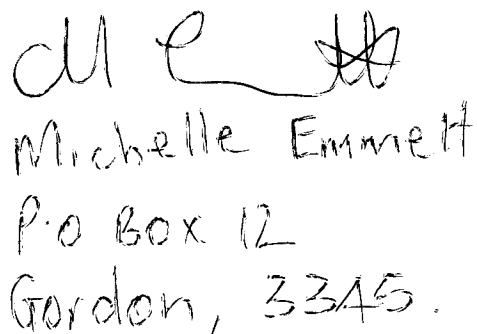 Michelle Emmett
P.O Box 12
Gordon, 3345.